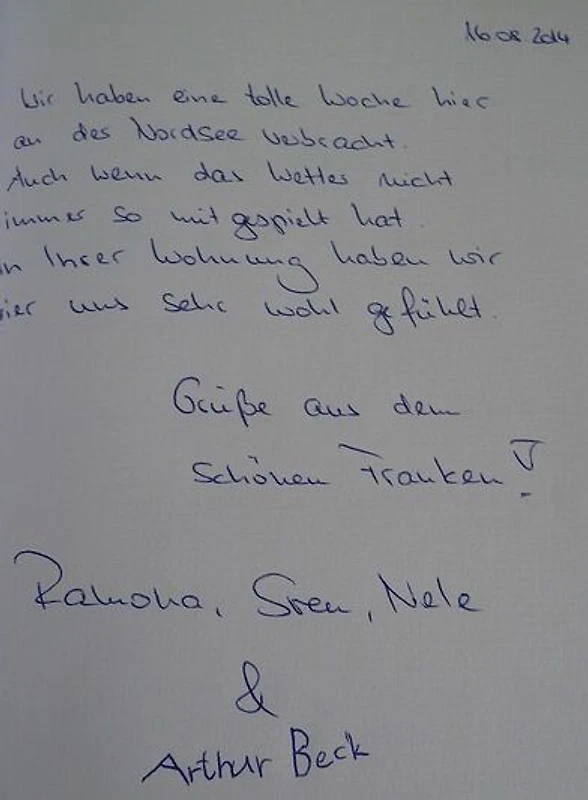 16.08.2014
Wir haben eine tolle Woche hier
an der Nordsee verbracht.
Auch wenn das Wetter nicht
immer so mitgespielt hat.
in Ihrer Wohnung haben wir
vier uns sehr wohl gefühlt.
Grüße aus dem
schönen Franken!
Ramona, Sven, Nele
&
Arthur Beck